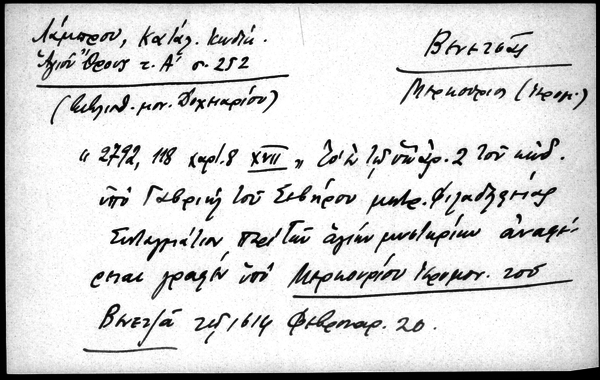 Λάμπρου, Κατάλ. Κωδίκ.
Ἁγίου Ὄρους τ. Α΄ σ. 252
(Βιβλιοθ. μον. Δοχειαρίου)
Βενετσᾶς
Μερκούριος (ἱερομ.)
" 2792, 118 χαρτ. 8 XVII "
2 τοῦ κώδ.
ὑπὸ Γαβριὴλ τοῦ Σεβήρου μητρ. Φιλαδελφείας
Συνταγμάτιον περὶ τῶν ἁγίων μυστηρίων ἀναφέ-
ρεται γραφὲν ὑπὸ Μερκουρίου ἱερομον. τοῦ
Βενετζᾶ τῷ 1614 Φεβρουαρ. 20.